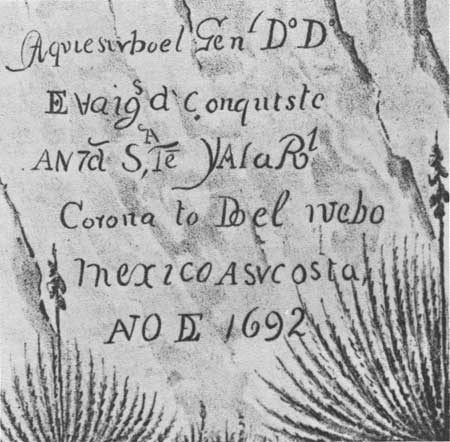 Aquiesuvboel Genl Do Do
E Vargs d Conquistc
AN7d S,A Te YAlaRl
Corona to Do el nvebo
MexicoAsvcosta,
NO E 1692